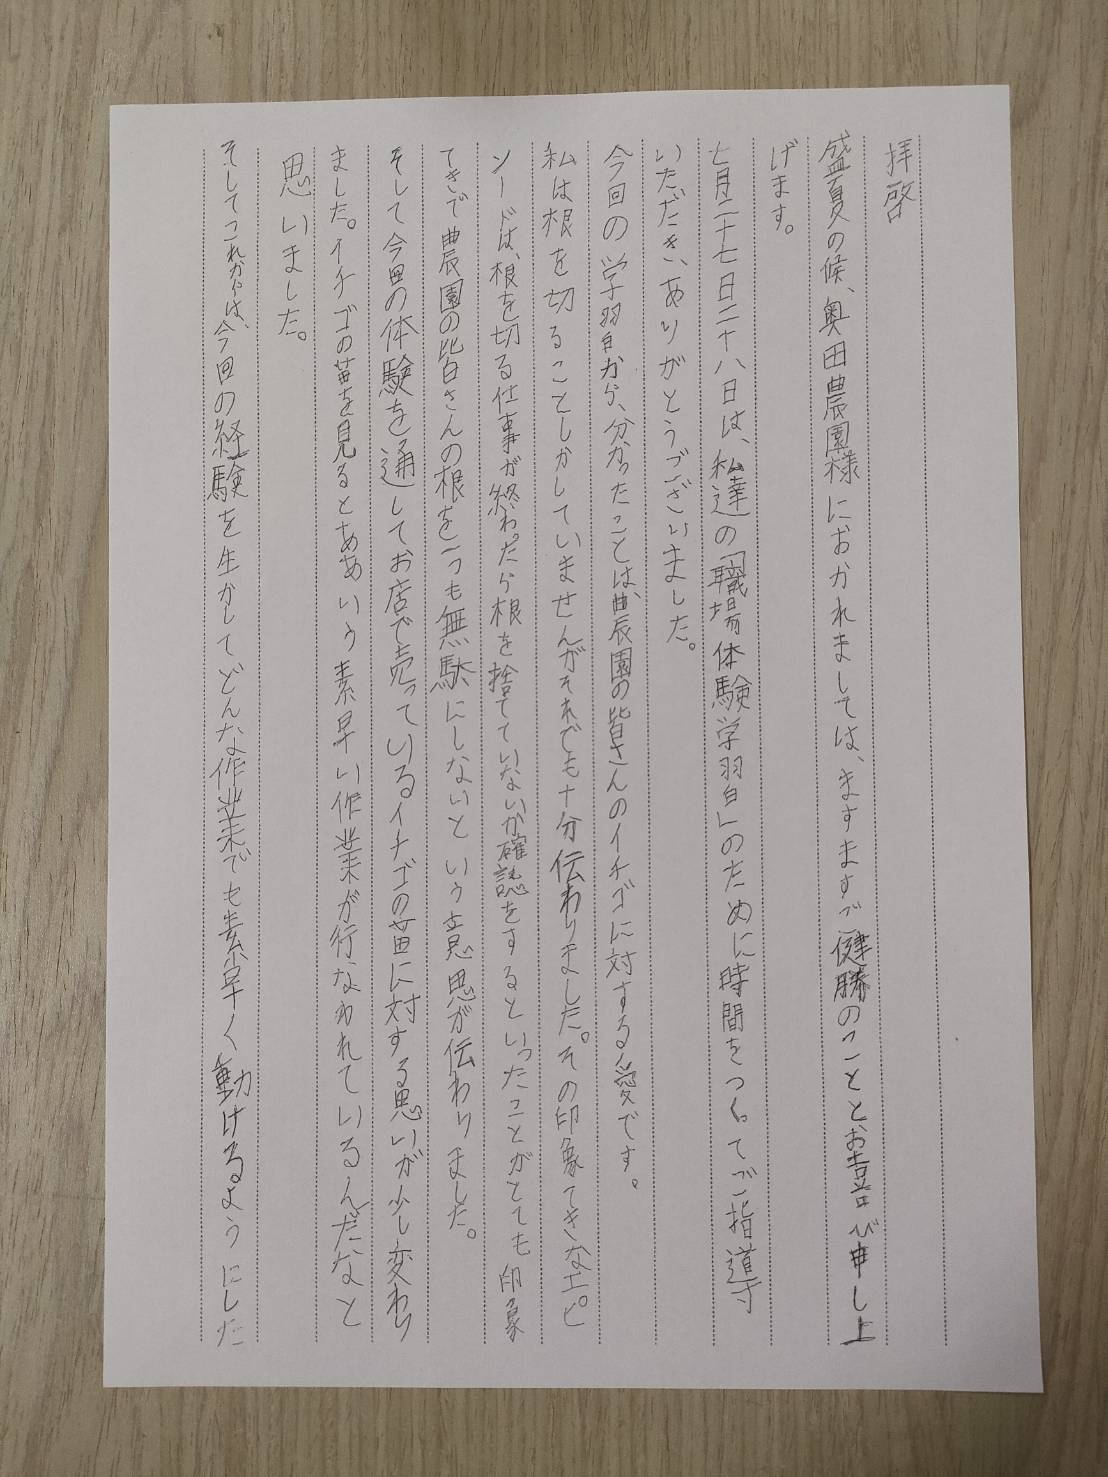 拝啓
盛夏の候、奥田農園様におかれましては、ますますご健勝のこととお喜び申し上
げます。
七月二十七日二十八日は、私達の「職場体験学習」のために時間をつくってご指導
いただき、ありがとうございました。
今回の学習から、分かったことは、農園の皆さんのイチゴに対する愛です。
私は根を切ることしかしていませんがそれでも十分伝わりました。その印象てきなエピ
ソードは、根を切る仕事が終わったら根を捨てていないか確認をするといったことがとても印象
てきで農園の皆さんの根を一つも無駄にしないという意思が伝わりました。
そして今回の体験を通してお店で売っているイチゴの苗に対する思いが少し変わり
ました。イチゴの苗を見るとああいう素早い作業が行なわれているんだなと
思いました。
そしてこれからは、今回の経験を生かしてどんな作業でも素早く動けるようにした